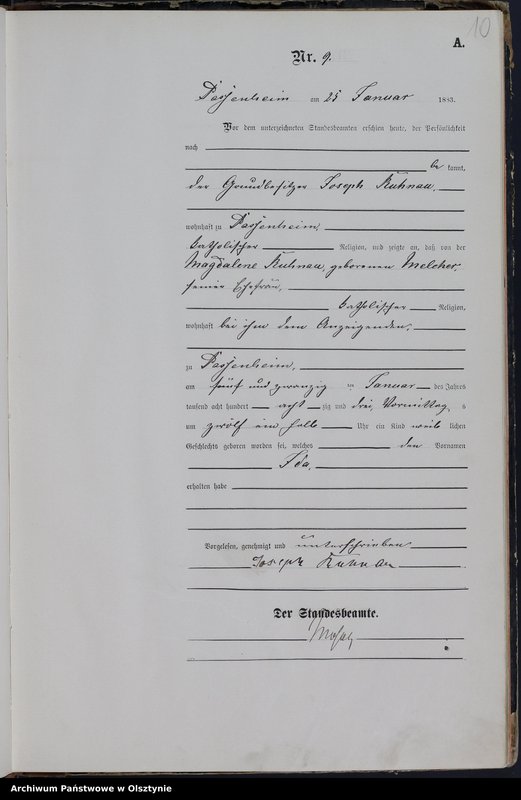 10
A.
Nr. 9.
Passenheim am 25 Januar 1883.
Vor dem unterzeichneten Standesbeamten erschien heute, der Persönlichkeit
nach
be kannt,
der Grundbesitzer Joseph Kuhnau,
wohnhaft zu Passenheim,
katholischer Religion, und zeigte an, daß von der
Magdalene Kuhnau, geborenen Melcher,
seiner Ehefrau,
katholischer Religion,
wohnhaft bei ihm dem Anzeigenden,
zu Passenheim,
am fünf und zwanzig ten Januar des Jahres
tausend acht hundert acht zig und drei, Vormittag s
um zwölf ein halb Uhr ein Kind weib lichen
Geschlechts geboren worden sei, welches den Vornamen
Ida,
erhalten habe
Vorgelesen, genehmigt und unterschrieben
Joseph Kuhnau
Der Standesbeamte.
Archiwum Państwowe w Olsztynie